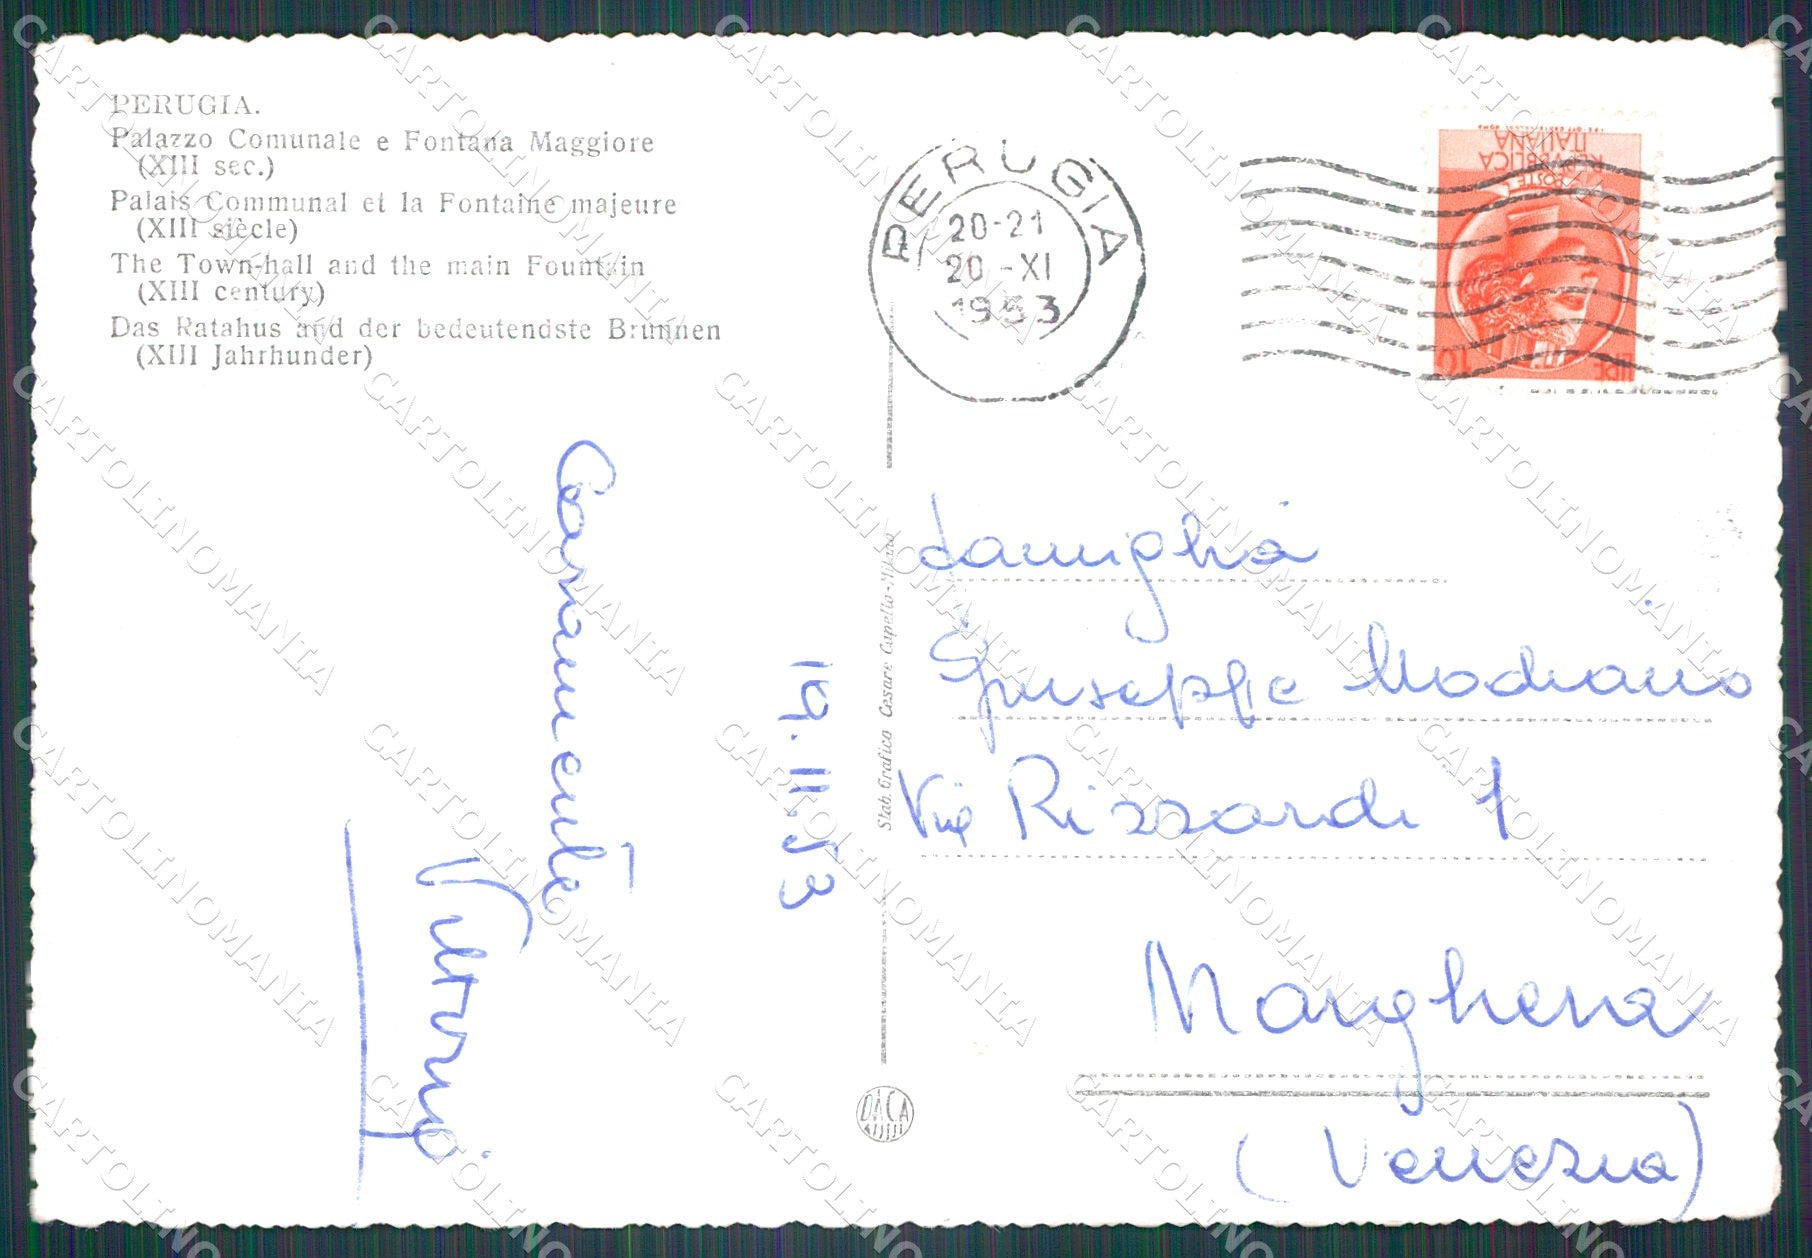 PERUGIA.
Palazzo Comunale e Fontana Maggiore
(XIII sec.)
Palais Communal et la Fontaine majeure
(XIII siècle)
The Town-hall and the main Fountain
(XIII century)
Das Ratahus and der bedeutendste Brunnen
(XIII Jahrhunder)
PERUGIA
20-21
20-XI
1953
POSTE
REPVBBLICA
ITALIANA
LIRE 10
Caramente
Vittorio
19.11.53
Stab. Grafico Cesare Capello-Milano
DACA
Famiglia
Giuseppe Modiano
Via Rizzardi 1
Marghera
(Venezia)
CARTOLINOMANIA